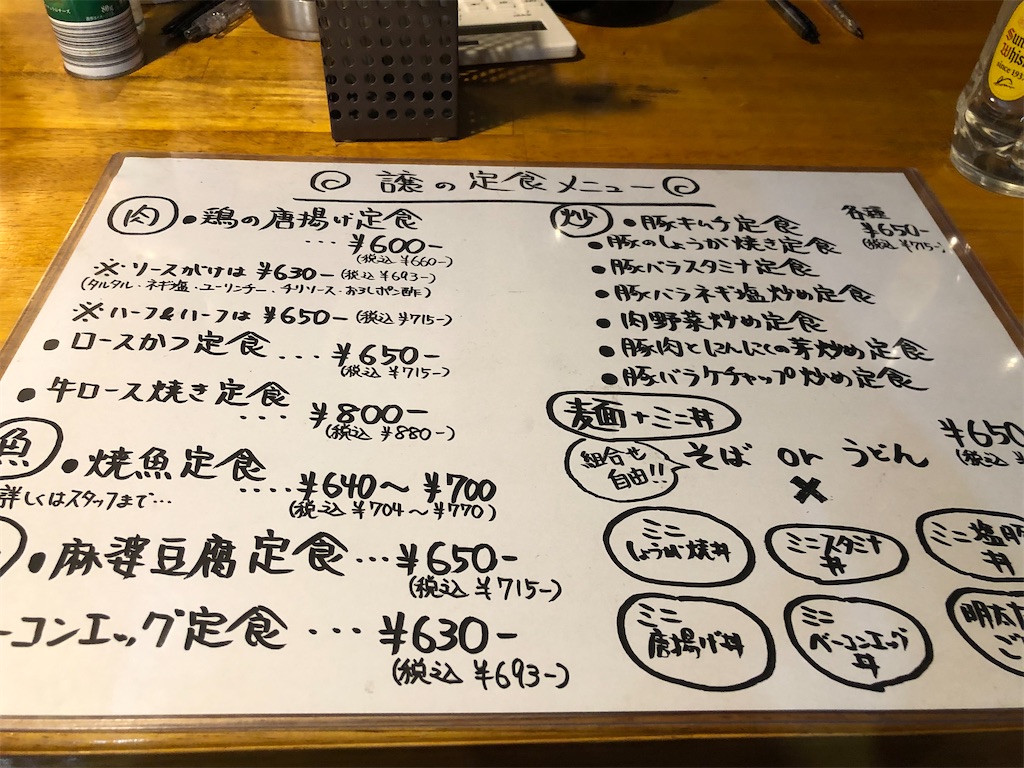 譲の定食メニュー
肉 ・鶏の唐揚げ定食
… ¥600-
(税込 ¥660-)
※ソースがけは ¥630- (税込 ¥693-)
(タルタル・ネギ塩・ユーリンチー・チリソース・おろしポン酢)
※ハーフ&ハーフは ¥650- (税込 ¥715-)
・ロースかつ定食 … ¥650-
(税込 ¥715-)
・牛ロース焼き定食
… ¥800-
(税込 ¥880-)
魚 ・焼魚定食
…. ¥640～¥700
詳しくはスタッフまで…
(税込 ¥704～¥770)
・麻婆豆腐定食 … ¥650-
(税込 ¥715-)
ーコンエッグ定食 … ¥630-
(税込 ¥693-)
炒 ・豚キムチ定食
各種
¥650-
(税込 ¥715-)
・豚のしょうが焼き定食
・豚バラスタミナ定食
・豚バラネギ塩炒め定食
・肉野菜炒め定食
・豚肉とにんにくの芽炒め定食
・豚バラケチャップ炒め定食
麺+ミニ丼
¥650
(税込
組合せ
自由!!
そば or うどん
×
ミニ
しょうが焼丼
ミニスタミナ
丼
ミニ塩豚
丼
ミニ
唐揚げ丼
ミニ
ベーコンエッグ
丼
明太
ご
Whis
since 193